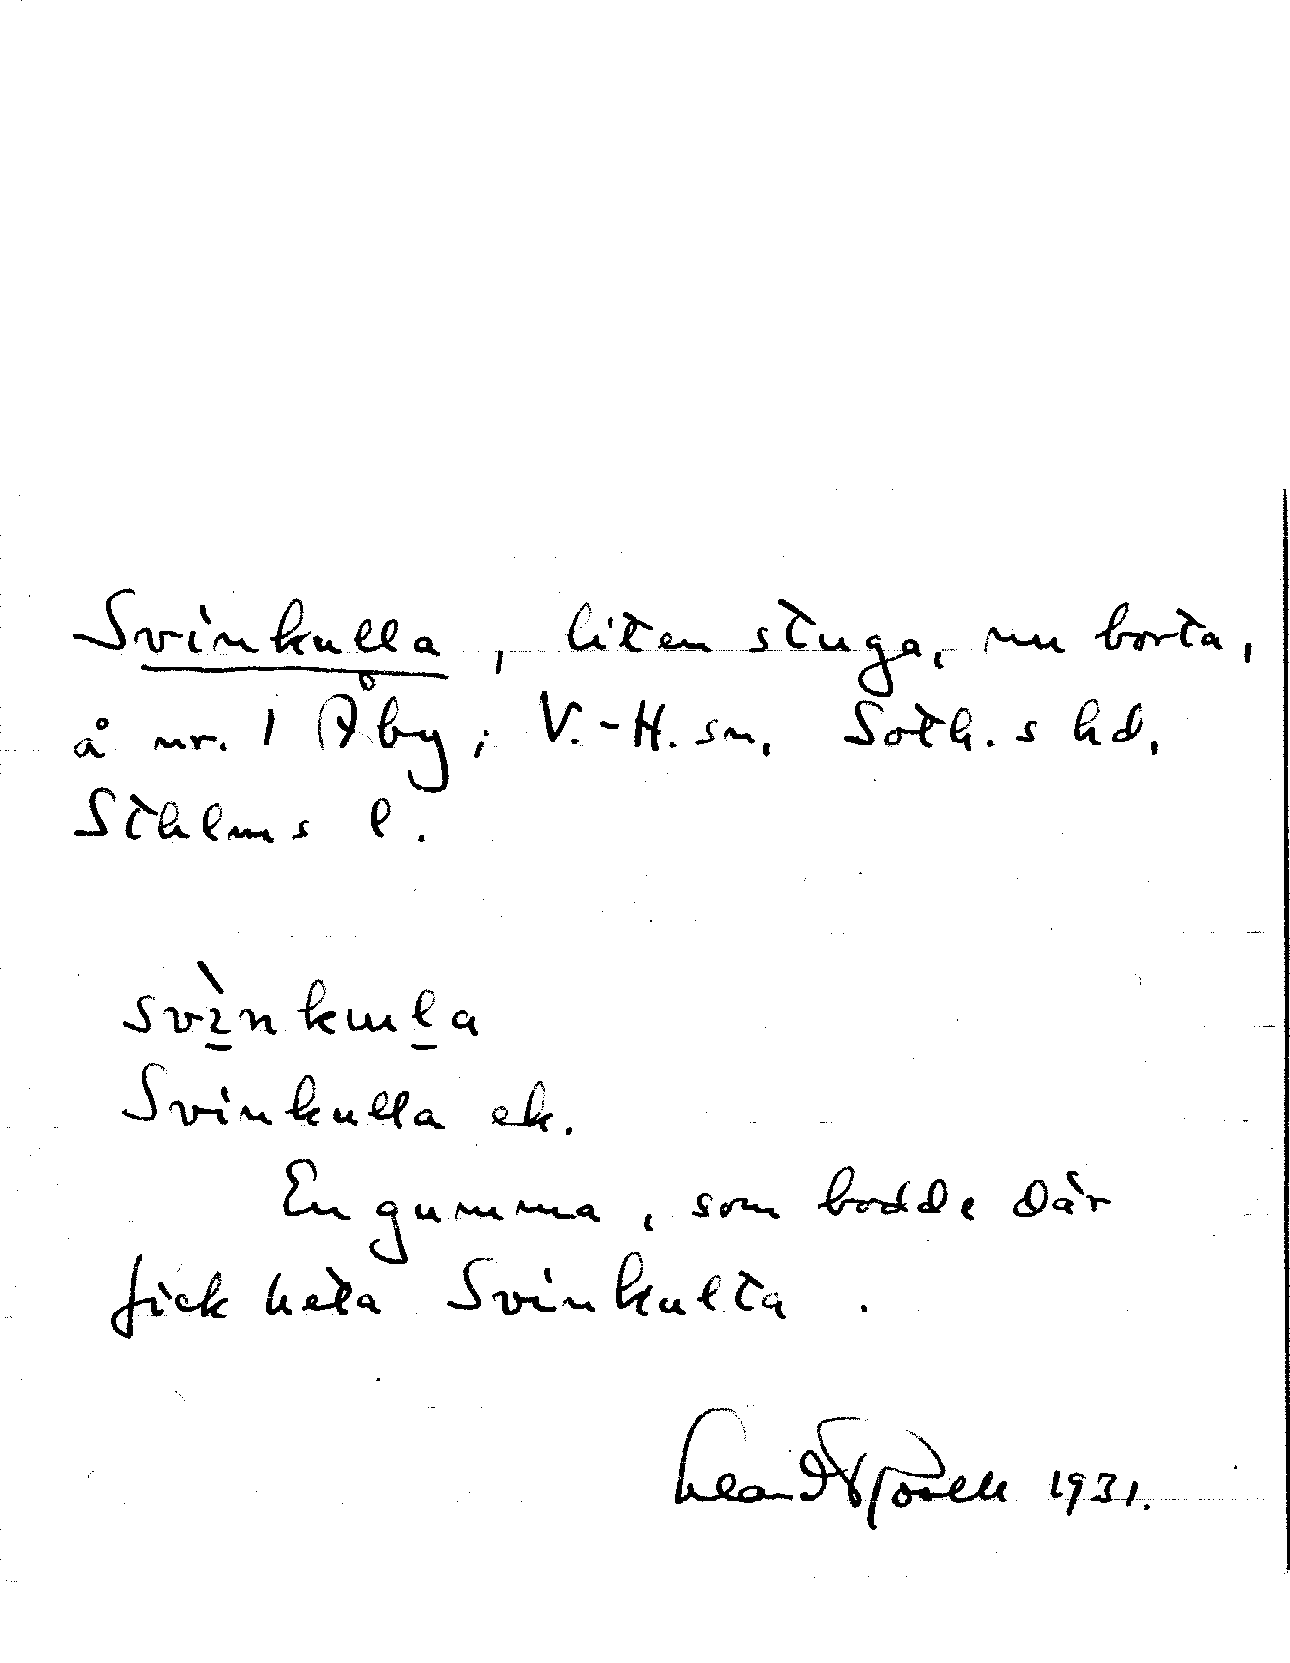 Svinkulla, liten stuga, nu borta,
å nr. 1 Åby, V.-H. sn, Soth.s hd,
Sthlms l.
svìnkɯla
Svinkulla ek.
En gumma, som bodde där
fick heta Svinkulta.
1931.